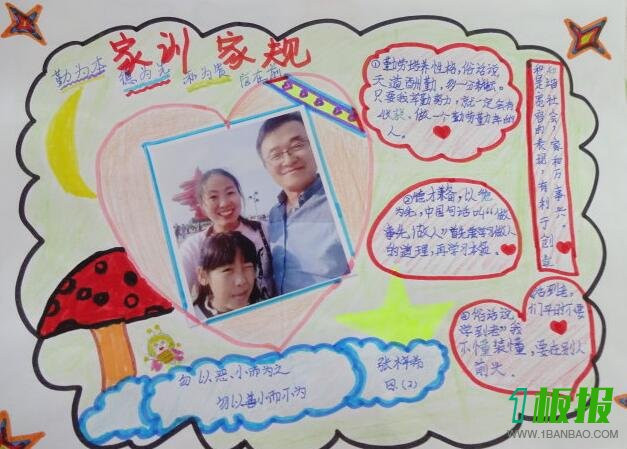 家训家规
勤为本 德为先 和为贵
①勤劳培养性格,俗话说
天道酬勤,多一分耕耘。
只要我辛勤努力,就一定会有
收获、做一个勤劳勤奋的
人。
德才兼备,以德
为先,中国句话叫“做
事先做人”首先要学习做人
的道理,再学习本领。
和谐社会,家和万事兴。
和是宽容的表现,有利于创造
④俗话说
学到老”我
不懂装懂,要在别人
前头。
活到老,
们平时不要
勿以恶小而为之
勿以善小而不为
张梓
四(2)
1板报
WWW.1BANBAO.COM